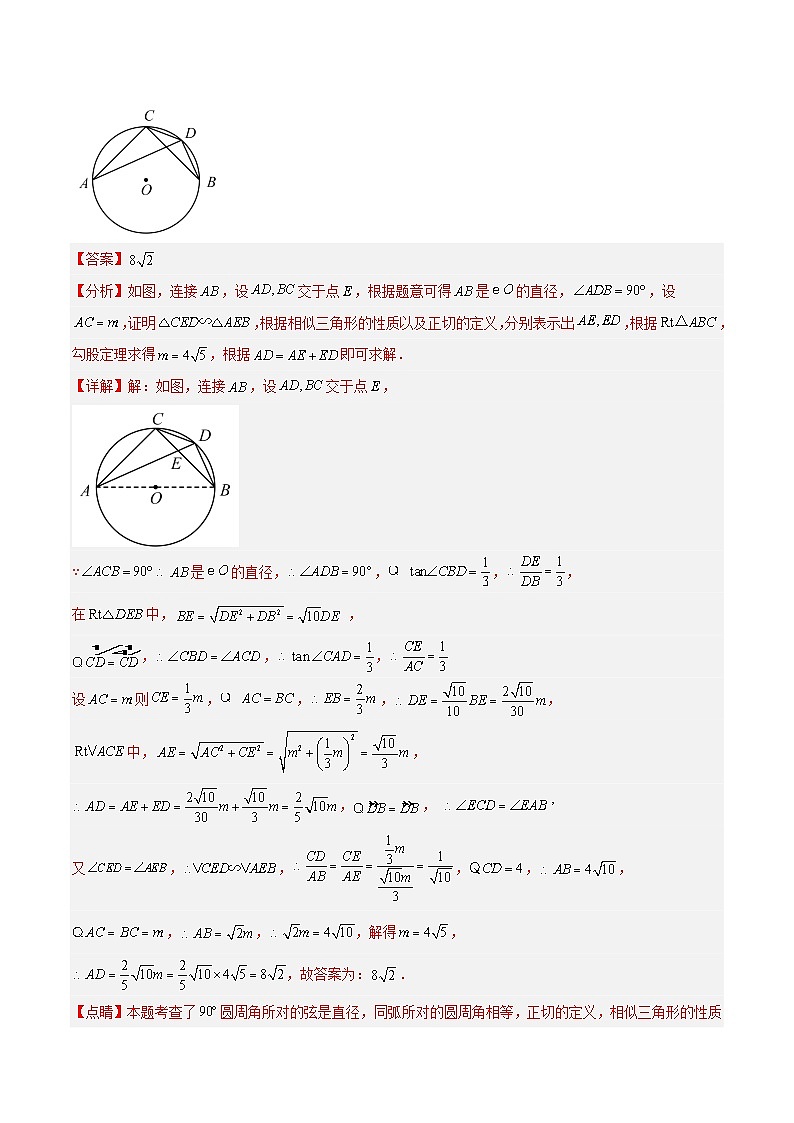 C
D
A
O
B
【答案】8√2
【分析】如图，连接 AB，设 AD, BC 交于点 E，根据题意可得 AB 是 e O 的直径，∠ADB = 90°，设
AC = m，证明 △CED∽△AEB，根据相似三角形的性质以及正切的定义，分别表示出 AE, ED，根据 Rt△ABC，
勾股定理求得 m = 4√5，根据 AD = AE + ED 即可求解．
【详解】解：如图，连接 AB，设 AD, BC 交于点 E，
C
D
E
A
O
B
∵∠ACB = 90° ∴ AB 是 e O 的直径，∴ ∠ADB = 90°，Q tan∠CBD = 1/3，∴ DE/DB = 1/3，
在 Rt△DEB 中，BE = √(DE² + DB²) = √10DE ，
Q CD = CD，∴ ∠CBD = ∠ACD，∴ tan∠CAD = 1/3，∴ CE/AC = 1/3
设 AC = m 则 CE = 1/3 m，Q AC = BC，∴ EB = 2/3 m，∴ DE = √10/10 BE = 2√10/30 m，
RtVACE 中，AE = √(AC² + CE²) = √(m² + (1/3 m)²) = √10/3 m，
∴ AD = AE + ED = 2√10/30 m + √10/3 m = 2/5 √10m，Q DB = DB， ∴ ∠ECD = ∠EAB，
又 ∠CED = ∠AEB，∴VCED∽VAEB，∴ CD/AB = CE/AE = (1/3 m)/(√10m/3) = 1/√10，Q CD = 4，∴ AB = 4√10，
Q AC = BC = m，∴ AB = √2m，∴ √2m = 4√10，解得 m = 4√5，
∴ AD = 2/5 √10m = 2/5 √10 × 4√5 = 8√2，故答案为：8√2．
【点睛】本题考查了 90° 圆周角所对的弦是直径，同弧所对的圆周角相等，正切的定义，相似三角形的性质